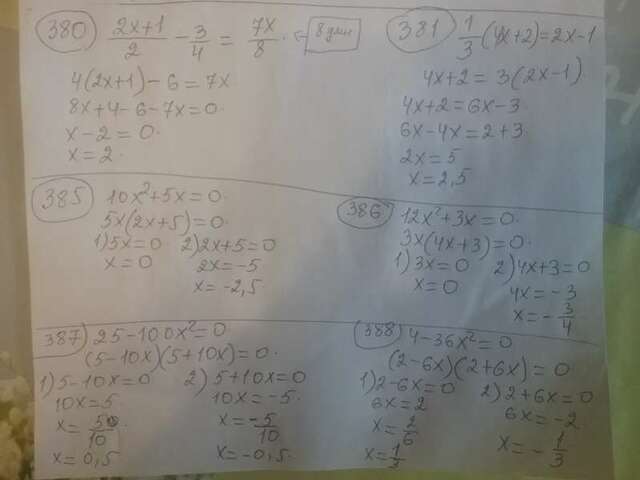 380) (2x+1)/2 - 3/4 = 7x/8
4(2x+1)-6=7x
8x+4-6-7x=0.
x-2=0.
x=2.
381) 1/3(4x+2)=2x-1
4x+2=3(2x-1)
4x+2=6x-3
6x-4x=2+3
2x=5
x=2,5
385) 10x²+5x=0.
5x(2x+5)=0.
1)5x=0 2)2x+5=0
x=0 2x=-5
x=-2,5
386) 12x²+3x=0.
3x(4x+3)=0.
1)3x=0 2)4x+3=0
x=0 4x=-3
x=-3/4
387) 25-100x²=0
(5-10x)(5+10x)=0.
1)5-10x=0 2)5+10x=0
10x=5 10x=-5.
x=5/10 x=-5/10
x=0,5 x=-0,5.
388) 4-36x²=0
(2-6x)(2+6x)=0
1)2-6x=0 2)2+6x=0
6x=2 6x=-2
x=2/6 x=-1/3
x=1/3